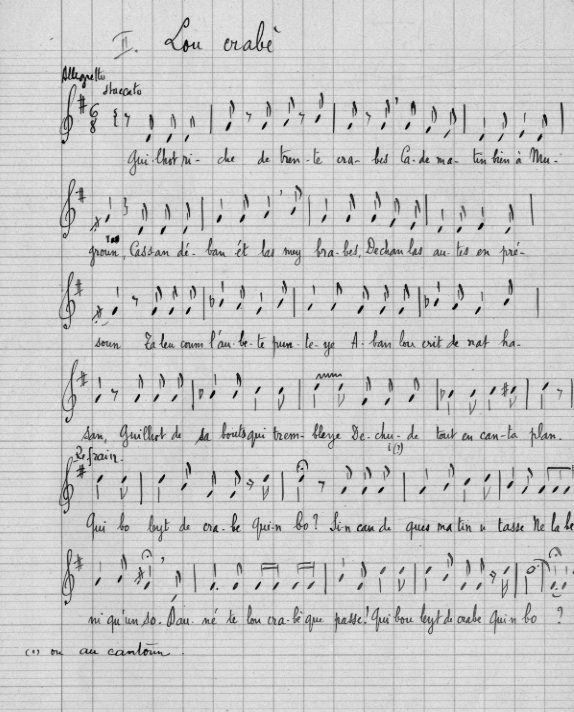 II. Lou crabè
Allegretto
staccato
6 8
Gui-lhot ri-che de tren-te cra-bes Ca-de ma-tin bien à Mu-
groun, Cassan dé-ban ét las muy bra-bes, Dechan las au-tes en pré-
soun Ta leu coum l'au-be-te pun-te-ye A-ban lou crit de nat ha-
san, Guilhot de sa bouts qui trem-bleye De-chu-de tout en can-ta plan.
Refrain.
i (1)
Qui bo leyt de cra-be Qui-n bo? Si-n can de ques ma tin u tasse Ne la be
ni qu'un so. Dau-né te lou cra-bè que passe! Qui bou leyt de crabe Qui-n bo ?
(1) ou au cantoun.